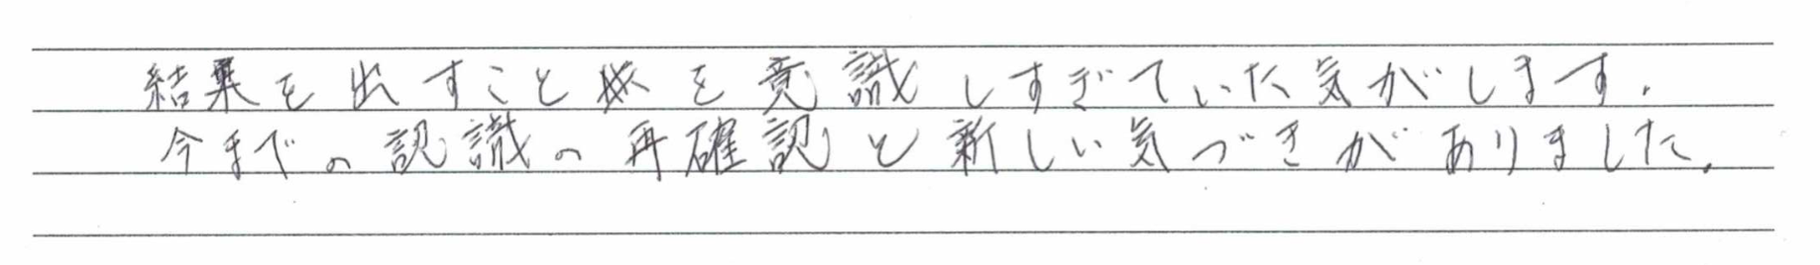 結果を出すことを意識しすぎていた気がします。
今までの認識の再確認と新しい気づきがありました。